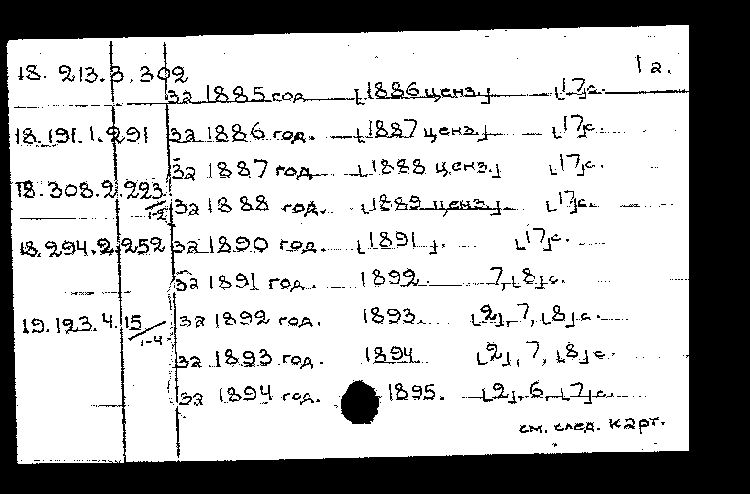 1 а.
18. 213. 3. 302
за 1885 год [1886 ценз.] [17]с.
18. 191. 1. 291 за 1886 год. [1887 ценз.] [17]с.
за 1887 год [1888 ценз.] [17]с.
18. 308. 2. 223 1-2
за 1888 год. [1889 ценз.] [17]с.
18. 294. 2. 252 за 1890 год. [1891]. [17]с.
за 1891 год. 1892. 7, [8]с.
19. 123. 4. 15 1-4 за 1892 год. 1893. [2], 7, [8]с.
за 1893 год. 1894. [2], 7, [8]с.
за 1894 год. 1895. [2], 6, [7]с.
см. след. карт.